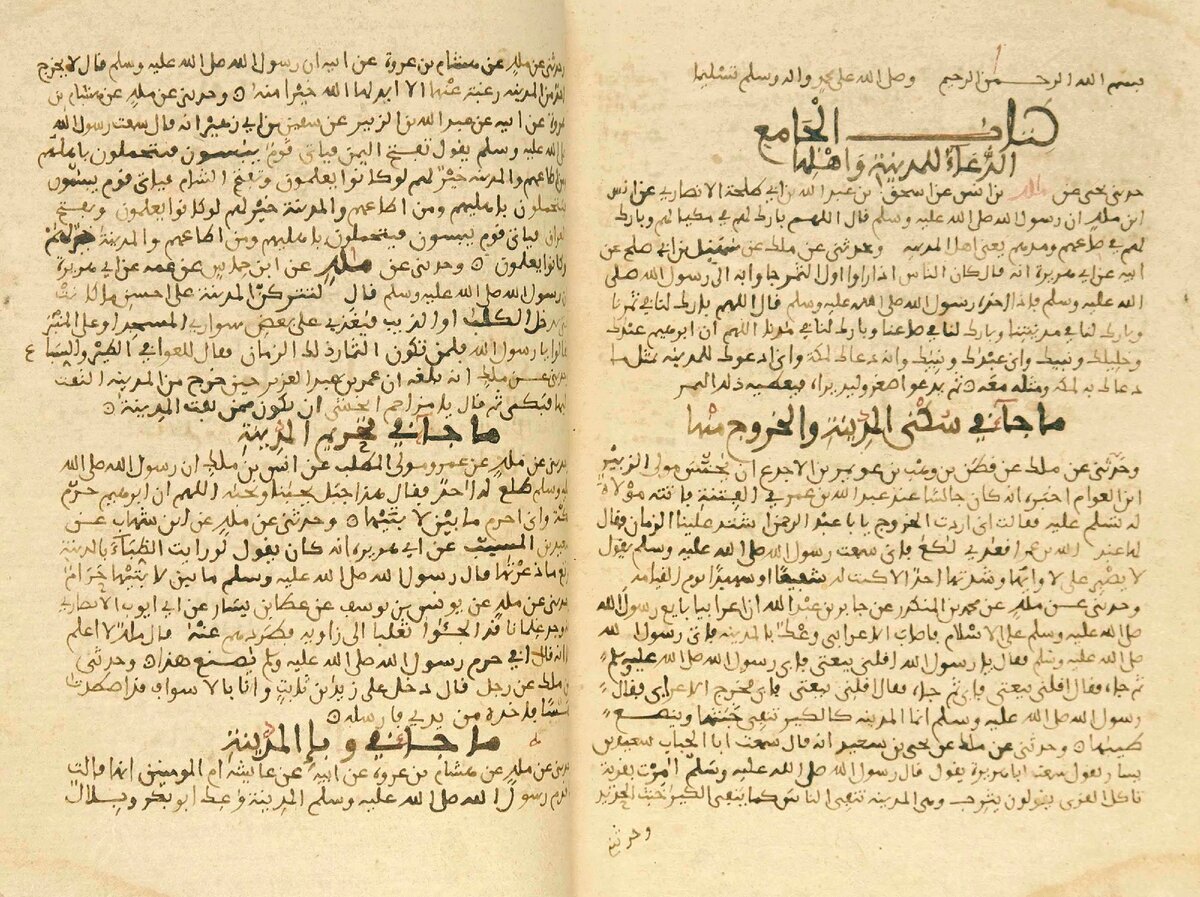 بسم الله الرحمن الرحيم وصلى الله على محمد واله وسلم تسليما
كتاب الجامع
الدعاء للمدينة واهلها
حدثني يحيى عن ملك بن انس عن اسحق بن عبد الله بن ابي طلحة الانصاري عن انس
ابن ملك ان رسول الله صلى الله عليه وسلم قال اللهم بارك لهم في مكيالهم وبارك
لهم في صاعهم ومدهم يعني اهل المدينة وحدثني عن ملك عن سهيل بن ابي صلح عن
ابيه عن ابي هريرة انه قال كان الناس اذا راوا اول الثمر جاوا به الى رسول الله صلى
الله عليه وسلم فاذا اخذه رسول الله صلى الله عليه وسلم قال اللهم بارك لنا في ثمرنا
وبارك لنا في مدينتنا وبارك لنا في صاعنا وبارك لنا في مدنا اللهم ان ابرهيم عبدك
وخليلك ونبيك واني عبدك ونبيك وانه دعاك لمكة واني ادعوك للمدينة بمثل ما
دعاك به لمكة ومثله معه ثم يدعوا اصغر وليد يراه فيعطيه ذلك الثمر
ما جاء في سكنى المدينة والخروج منها
وحدثني عن ملك عن قطن بن وهب بن عويمر بن الاجدع ان يحنس مولى الزبير
ابن العوام اخبره انه كان جالسا عند عبد الله بن عمر في الفتنة فاتته مولاة
له تسلم عليه فقالت اني اردت الخروج يا با عبد الرحمن اشتد علينا الزمان فقال
لها عبد الله بن عمر اقعدي لكع فاني سمعت رسول الله صلى الله عليه وسلم يقول
لا يصبر على لاوائها وشدتها احد الا كنت له شفيعا او شهيدا يوم القيامة
وحدثني عن ملك عن محمد بن المنكدر عن جابر بن عبد الله ان اعرابيا بايع رسول الله
صلى الله عليه وسلم على الاسلام فاصاب الاعرابي وعك بالمدينة فاتى رسول الله
صلى الله عليه وسلم فقال يا رسول الله اقلني بيعتي فابى رسول الله صلى الله عليه وسلم
ثم جاءه فقال اقلني بيعتي فابى ثم جاءه فقال اقلني بيعتي فابى فخرج الاعرابي فقال
رسول الله صلى الله عليه وسلم انما المدينة كالكير تنفي خبثها وينصع
طيبها وحدثني عن ملك عن يحيى بن سعيد انه قال سمعت ابا الحباب سعيد بن
يسار يقول سمعت ابا هريرة يقول قال رسول الله صلى الله عليه وسلم امرت بقرية
تاكل القرى يقولون يثرب وهي المدينة تنفي الناس كما ينفي الكير خبث الحديد
وحدثني
وحدثني عن ملك عن هشام بن عروة عن ابيه ان رسول الله صلى الله عليه وسلم قال لا يخرج
احد من المدينة رغبة عنها الا ابدلها الله خيرا منه وحدثني عن ملك عن هشام بن
عروة عن ابيه عن عبد الله بن الزبير عن سفين بن ابي زهير انه قال سمعت رسول الله
صلى الله عليه وسلم يقول تفتح اليمن فياتي قوم يبسون فيتحملون باهلهم
ومن اطاعهم والمدينة خير لهم لو كانوا يعلمون وتفتح الشام فياتي قوم يبسون
فيتحملون باهليهم ومن اطاعهم والمدينة خير لهم لو كانوا يعلمون وتفتح
العراق فياتي قوم يبسون فيتحملون باهليهم ومن اطاعهم والمدينة خير لهم
لو كانوا يعلمون وحدثني عن ملك عن ابن حماس عن عمه عن ابي هريرة
ان رسول الله صلى الله عليه وسلم قال لتتركن المدينة على احسن ما كانت
حتى يدخل الكلب او الذيب فيغذي على بعض سواري المسجد او على المنبر
فقالوا يا رسول الله فلمن تكون الثمار ذلك الزمان فقال للعوافي الطير والسباع
وحدثني عن ملك انه بلغه ان عمر بن عبد العزيز حين خرج من المدينة التفت
اليها فبكى ثم قال يا مزاحم اتخشى ان نكون ممن نفت المدينة
ما جاء في تحريم المدينة
وحدثني عن ملك عن عمرو مولى المطلب عن انس بن ملك ان رسول الله صلى الله
عليه وسلم طلع له احد فقال هذا جبل يحبنا ونحبه اللهم ان ابرهيم حرم
مكة واني احرم ما بين لابتيها وحدثني عن ملك عن ابن شهاب عن
سعيد بن المسيب عن ابي هريرة انه كان يقول لو رايت الظباء بالمدينة
ترتع ما ذعرتها قال رسول الله صلى الله عليه وسلم ما بين لابتيها حرام
وحدثني عن ملك عن يونس بن يوسف عن عطا بن يسار عن ابي ايوب الانصاري
انه وجد غلمانا قد الجئوا ثعلبا الى زاوية فطردهم عنه قال ملك لا اعلم
الا انه قال افي حرم رسول الله صلى الله عليه وسلم يصنع هذا وحدثني
عن ملك عن رجل قال دخل علي زيد بن ثابت وانا بالاسواف قد اصطدت
نهسا فاخذه من يدي فارسله
ما جاء في وباء المدينة
وحدثني عن ملك عن هشام بن عروة عن ابيه عن عايشة ام المومنين انها قالت
لما قدم رسول الله صلى الله عليه وسلم المدينة وعك ابو بكر وبلال